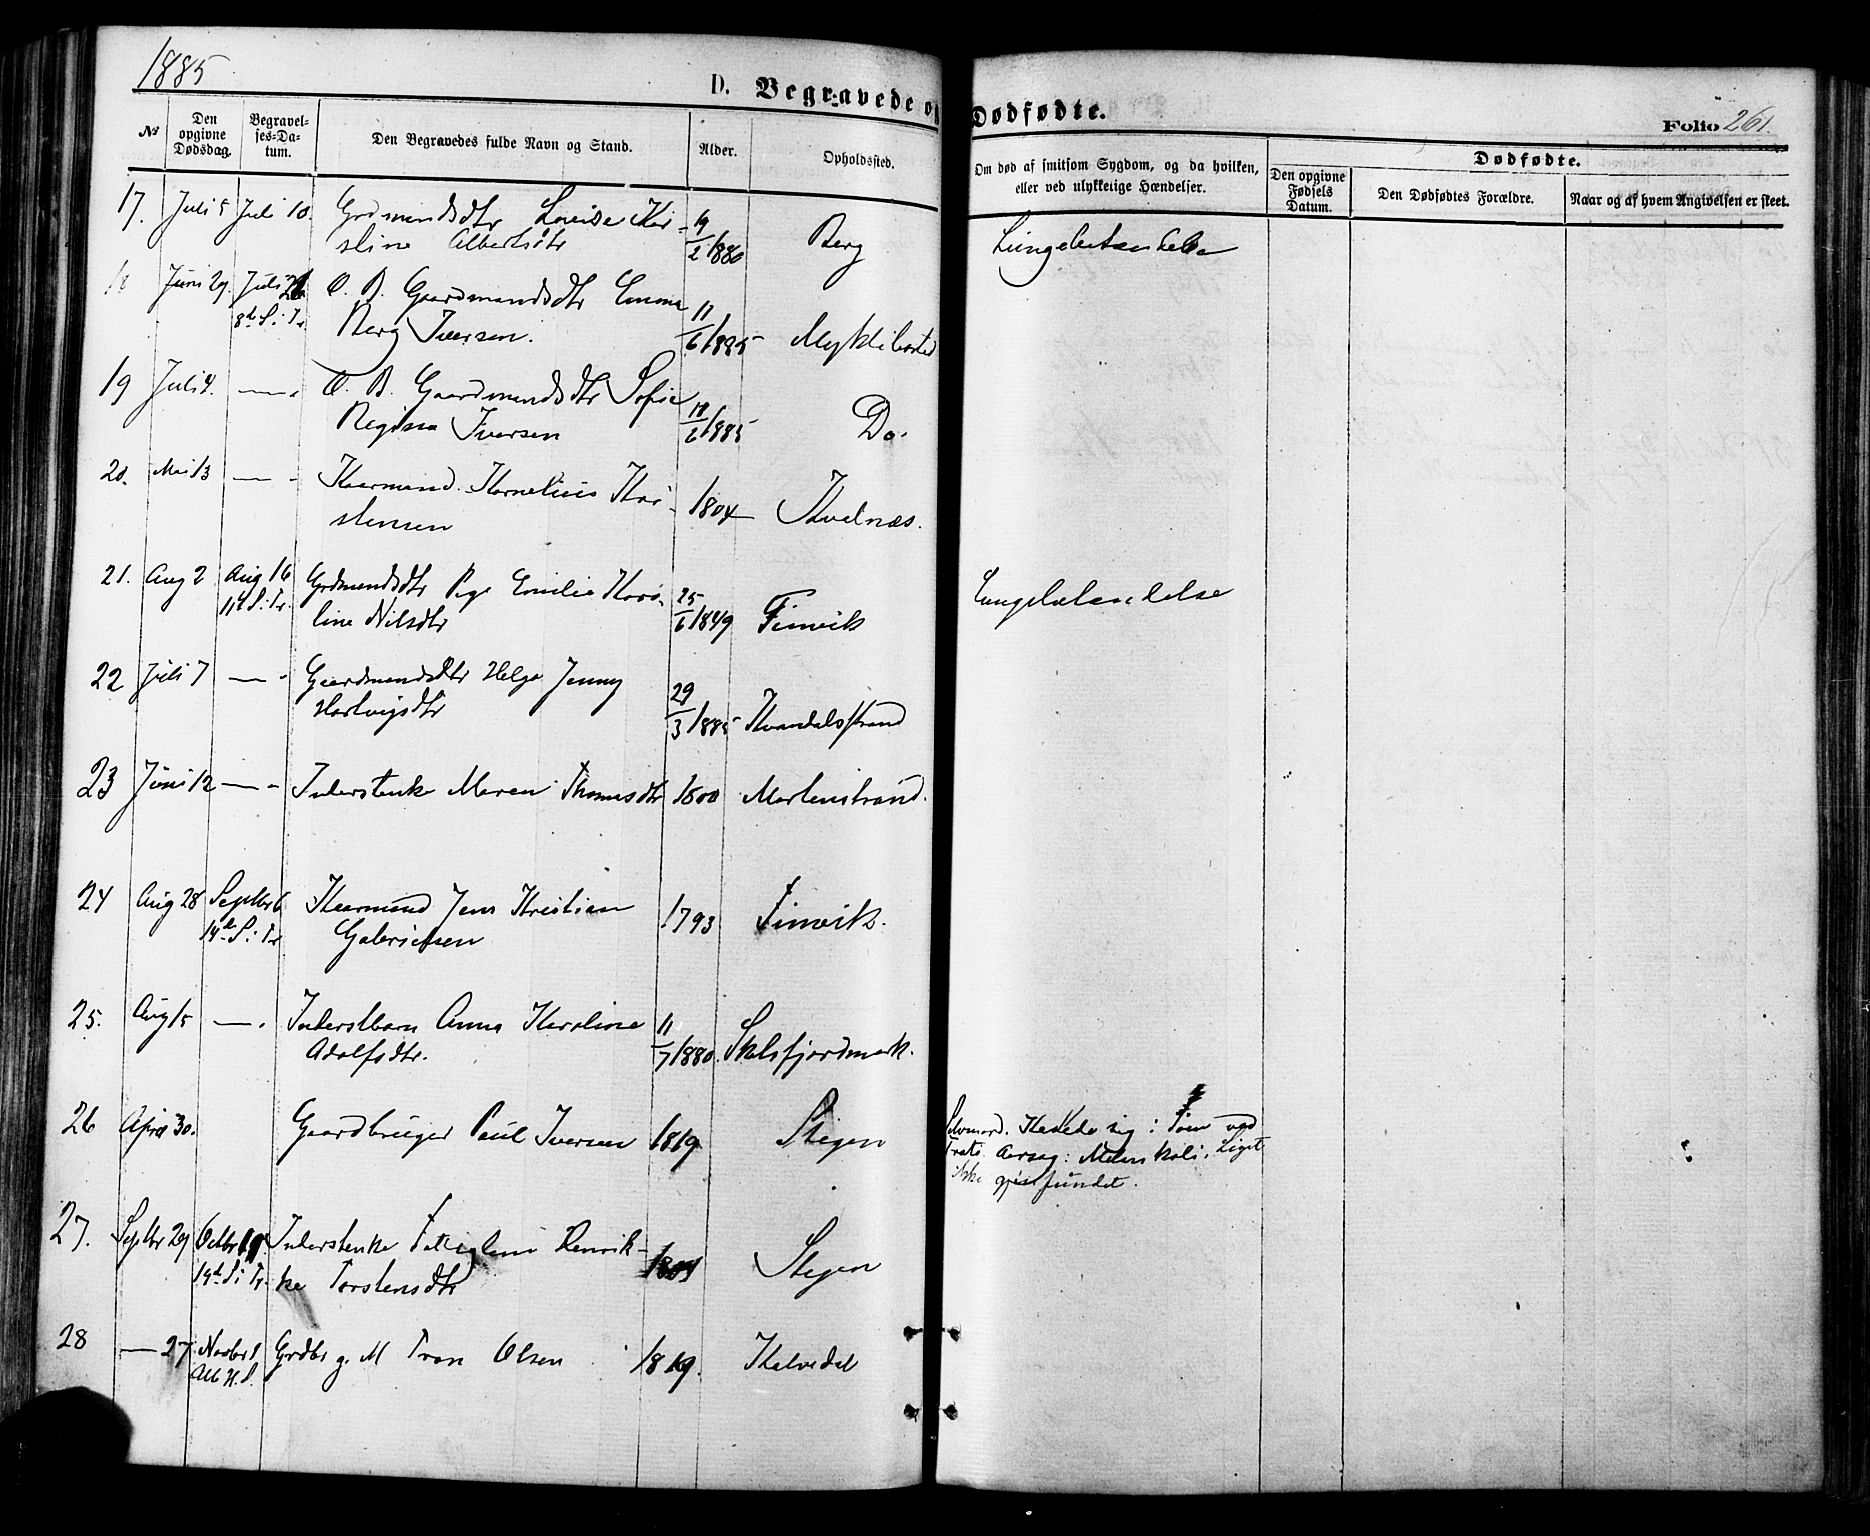 1885
D. Begravede og Dødfødte.
Folio 261.
№
Den opgivne Dødsdag.
Begravelses-Datum.
Den Begravedes fulde Navn og Stand.
Alder.
Opholdssted.
Om død af smitsom Sygdom, og da hvilken,
eller ved ulykkelige Hændelser.
Dødfødte.
Den opgivne Fødsels Datum.
Den Dødfødtes Forældre.
Naar og af hvem Angivelsen er skeet.
17. Juli 5 Juli 10. Grdmandsdtr Lovise Kar- 19/2 1880 Berg Lungebetændelse
oline Albertsdtr
18 Juni 29. Juli 26 O. B. Gaardmandsdtr Emma 11/6 1885 Myklebostad
8d S. i Tr. Berg Iversen.
19 Juli 4. — „ O. B. Gaardmandsdtr Sofie 18/6 1885 Do.
Regina Iversen
20. Mai 13 — „ Kaarmand Kornelius Kri- 1804 Kvalnæs.
stensen
21. Aug 2 Aug 16 Grdmandsdtr Pige Emilie Karo- 25/6 1849 Finvik Lungebetændelse
11d S. i Tr. line Nilsdtr
22 Juli 7 — „ Gaardmandsdtr Helga Jenny 29/3 1885 Kvandalsstrand
Hartvigsdtr
23 Juni 12 — „ Inderstenke Maren Thomasdtr 1800 Martenstrand.
24 Aug 28 Septbr 6 Kaarmand Jens Kristian 1793 Finvik.
14d S. i Tr Gabrielsen
25. Aug 15 — „ Inderstbarn Anna Karoline 11/7 1880. Skotsfjordmark.
Adolfsdtr.
26 April 30. Gaardbruger Paul Iversen 1819 Stegen Selvmord. Kastede sig i Søen ved
Aarsag: Melankoli. Liget
ikke gjenfundet.
27. Septbr 29 Octbr Inderstenke Henrik- Stegen
19d S. i Tr. ke Torstensdtr
28 — 27 Novbr 1 Grdbr g. M Tron Olsen 1819. Kalvedal
All H. S.